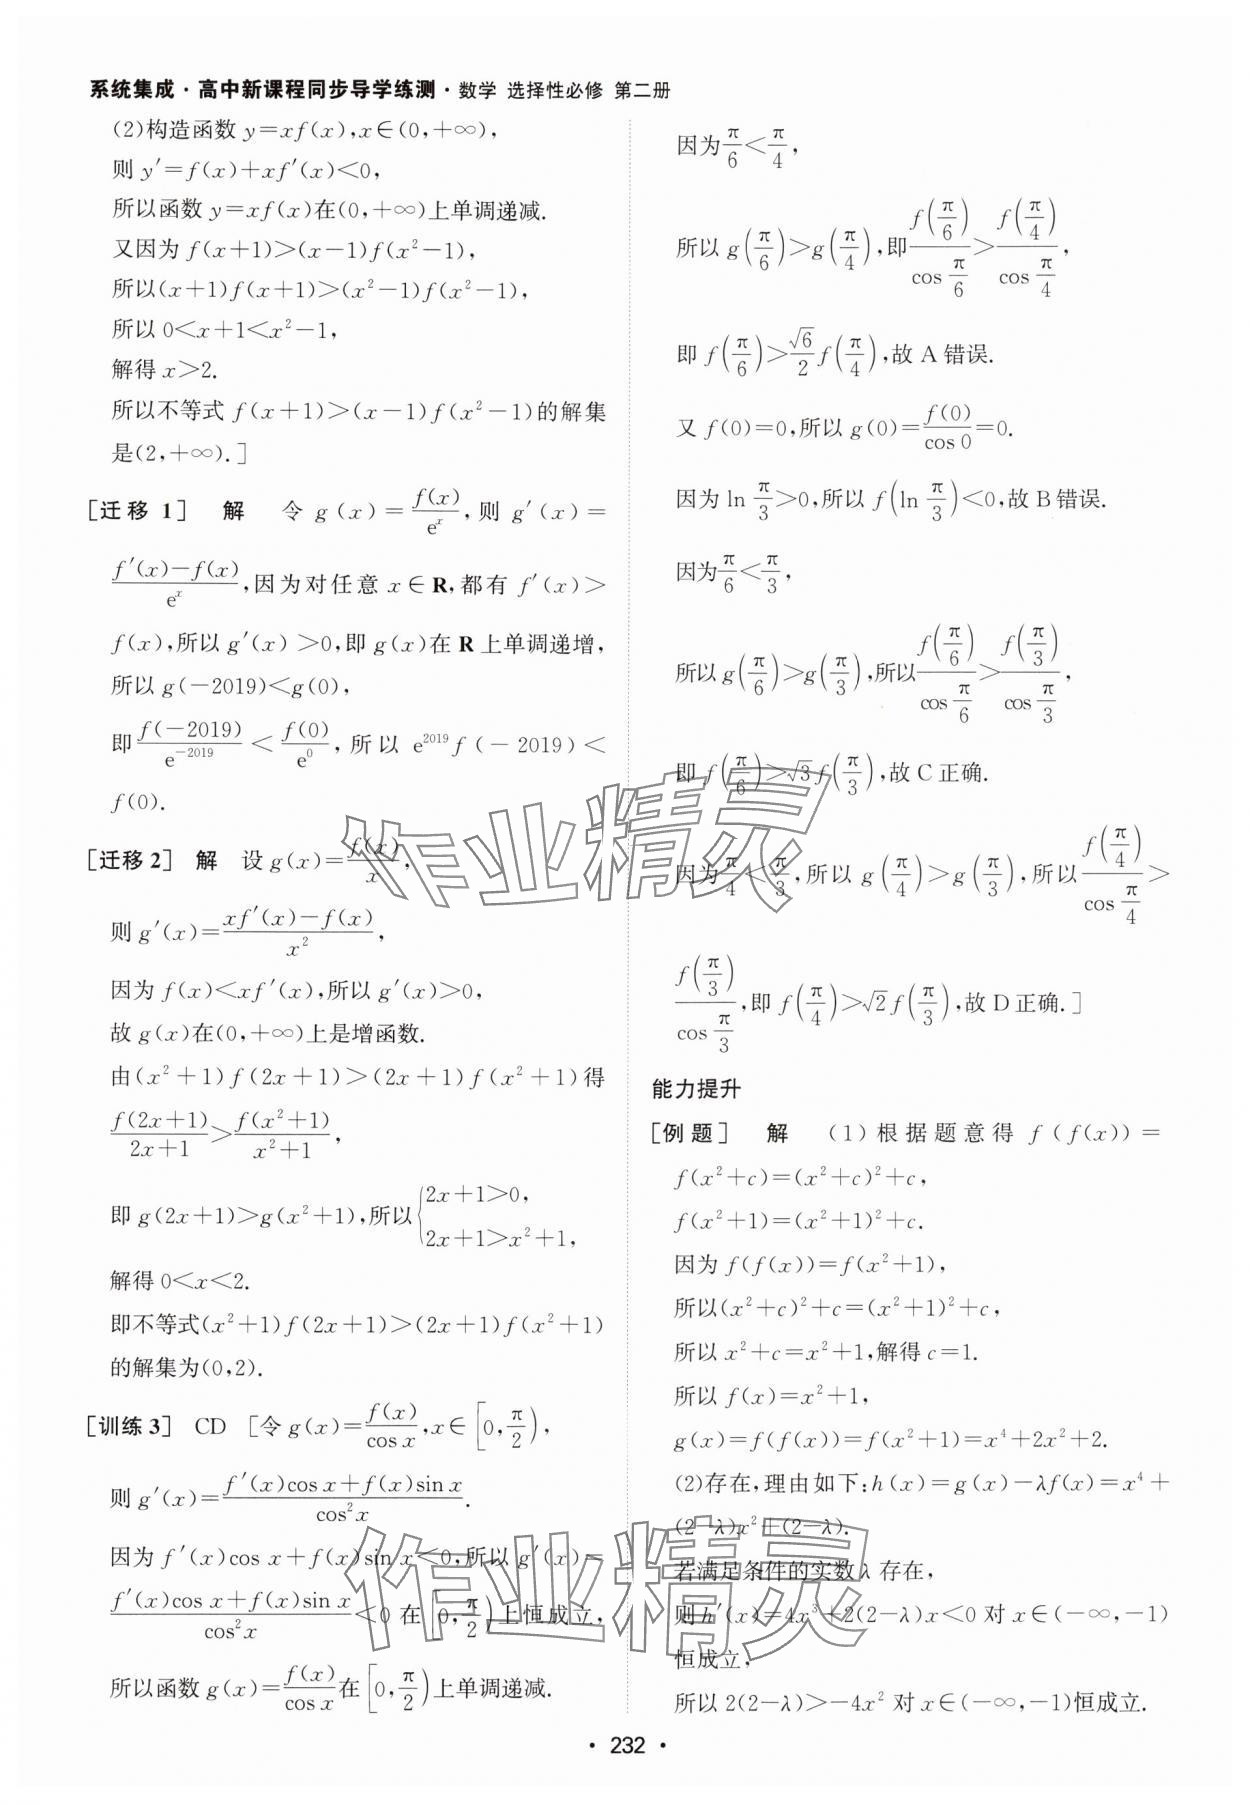 系统集成·高中新课程同步导学练测·数学 选择性必修 第二册
(2)构造函数 y=xf(x),x∈(0,+∞),
则 y′=f(x)+xf′(x)<0,
所以函数 y=xf(x)在(0,+∞)上单调递减.
又因为 f(x+1)>(x-1)f(x²-1),
所以(x+1)f(x+1)>(x²-1)f(x²-1),
所以 0<x+1<x²-1,
解得 x>2.
所以不等式 f(x+1)>(x-1)f(x²-1)的解集
是(2,+∞).]
[迁移 1] 解 令 g(x)=f(x)/eˣ,则 g′(x)=
(f′(x)-f(x))/eˣ,因为对任意 x∈R,都有 f′(x)>
f(x),所以 g′(x)>0,即 g(x)在 R 上单调递增,
所以 g(-2019)<g(0),
即 f(-2019)/e⁻²⁰¹⁹ < f(0)/e⁰,所以 e²⁰¹⁹f(-2019)<
f(0).
[迁移 2] 解 设 g(x)=f(x)/x,
则 g′(x)=(xf′(x)-f(x))/x²,
因为 f(x)<xf′(x),所以 g′(x)>0,
故 g(x)在(0,+∞)上是增函数.
由(x²+1)f(2x+1)>(2x+1)f(x²+1)得
f(2x+1)/(2x+1)>f(x²+1)/(x²+1),
即 g(2x+1)>g(x²+1),所以{2x+1>0,
2x+1>x²+1,
解得 0<x<2.
即不等式(x²+1)f(2x+1)>(2x+1)f(x²+1)
的解集为(0,2).
[训练 3] CD [令 g(x)=f(x)/cos x,x∈[0,π/2),
则 g′(x)=(f′(x)cos x+f(x)sin x)/cos²x.
因为 f′(x)cos x+f(x)sin x<0,所以 g′(x)=
(f′(x)cos x+f(x)sin x)/cos²x<0 在[0,π/2)上恒成立,
所以函数 g(x)=f(x)/cos x 在[0,π/2)上单调递减.
因为 π/6<π/4,
所以 g(π/6)>g(π/4),即 f(π/6)/cos π/6>f(π/4)/cos π/4,
即 f(π/6)>√6/2 f(π/4),故 A 错误.
又 f(0)=0,所以 g(0)=f(0)/cos 0=0.
因为 ln π/3>0,所以 f(ln π/3)<0,故 B 错误.
因为 π/6<π/3,
所以 g(π/6)>g(π/3),所以 f(π/6)/cos π/6>f(π/3)/cos π/3,
即 f(π/6)>√3f(π/3),故 C 正确.
因为 π/4<π/3,所以 g(π/4)>g(π/3),所以 f(π/4)/cos π/4>
f(π/3)/cos π/3,即 f(π/4)>√2f(π/3),故 D 正确.]
能力提升
[例题] 解 (1)根据题意得 f(f(x))=
f(x²+c)=(x²+c)²+c,
f(x²+1)=(x²+1)²+c.
因为 f(f(x))=f(x²+1),
所以(x²+c)²+c=(x²+1)²+c,
所以 x²+c=x²+1,解得 c=1.
所以 f(x)=x²+1,
g(x)=f(f(x))=f(x²+1)=x⁴+2x²+2.
(2)存在,理由如下:h(x)=g(x)-λf(x)=x⁴+
(2-λ)x²+(2-λ).
若满足条件的实数 λ 存在,
则 h′(x)=4x³+2(2-λ)x<0 对 x∈(-∞,-1)
恒成立,
所以 2(2-λ)>-4x² 对 x∈(-∞,-1)恒成立.
·232·
作业精灵
作业精灵